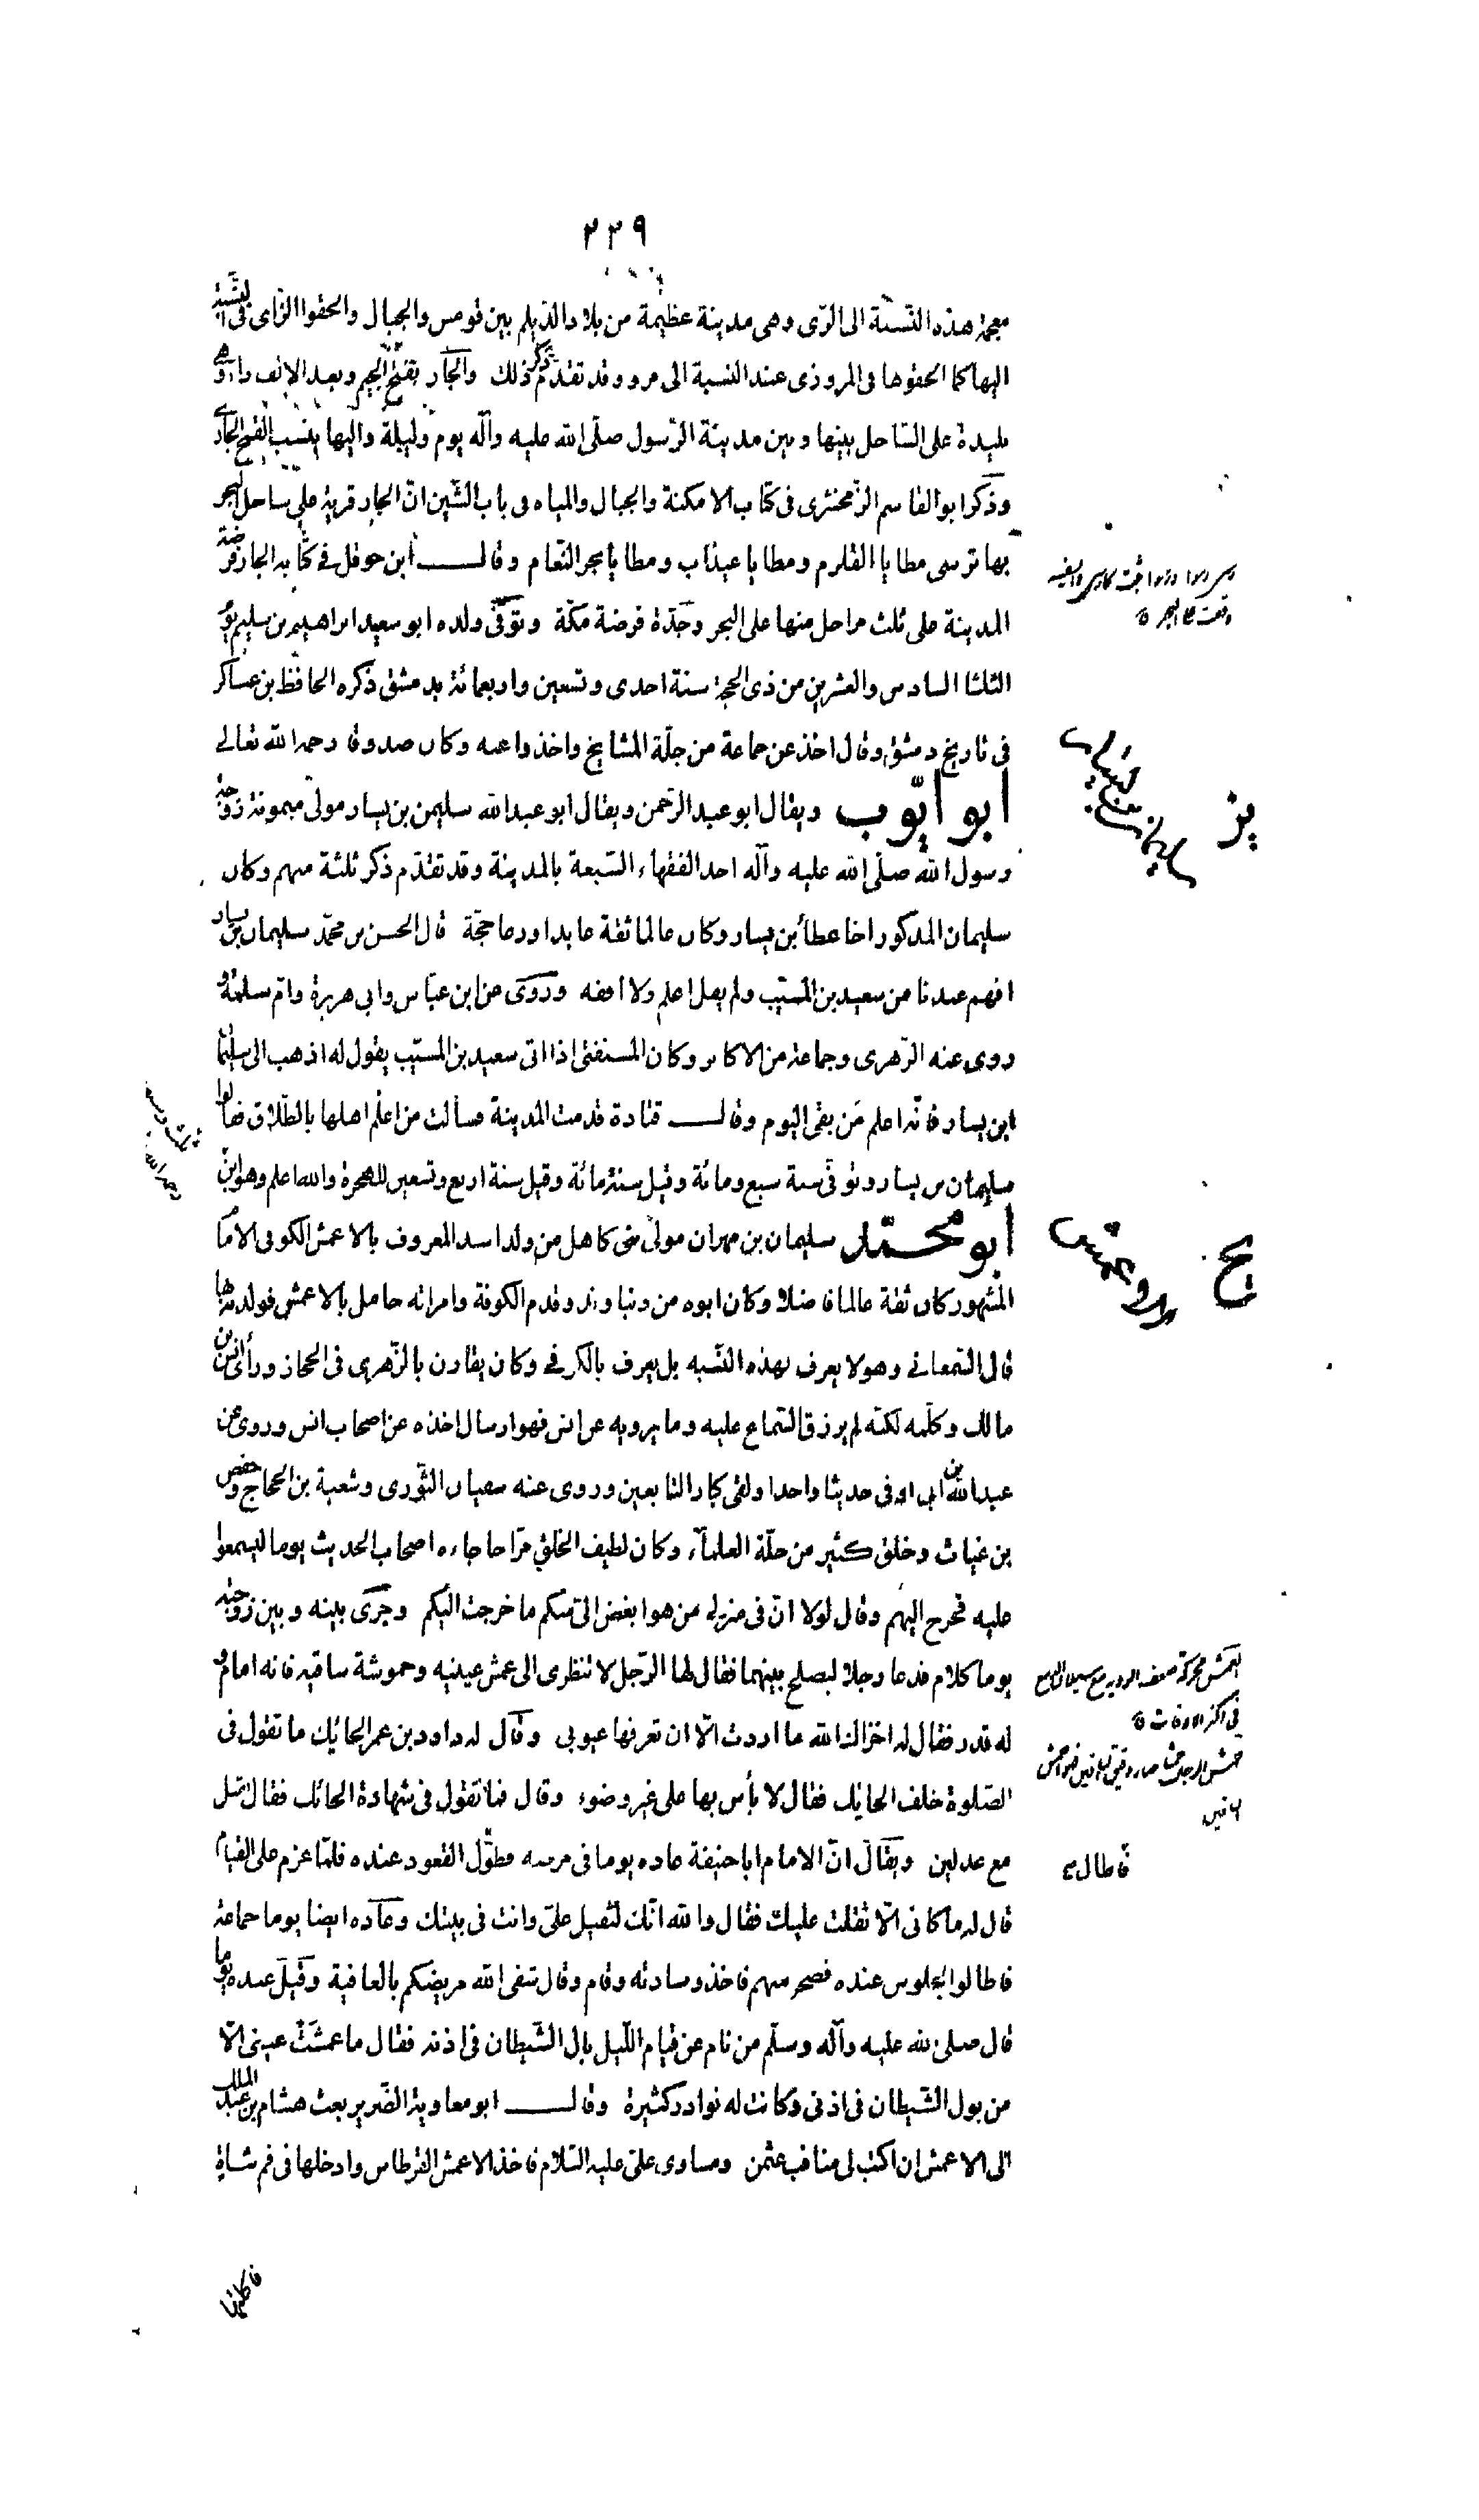 ٢٣٩
معجمة هذه النّسبة الى الرّى وهى مدينة عظيمة من بلاد الدّيلم بين قومس والجبال والحقوا الزاى فى النسبة
اليها كما الحقوها فى المروزى عند النسبة الى مرو وقد تقدّم ذكر ذلك والجار بفتح الجيم وبعد الالف راء وهى
بليدة على السّاحل بينها وبين مدينة الرّسول صلّى الله عليه وآله يوم وليلة واليها ينسب القمح الجارى
وذكر ابو القاسم الزّمخشرى فى كتاب الامكنة والجبال والمياه فى باب الشّين انّ الجار قرية على ساحل البحر
بها ترسى مطايا القلزم ومطايا عيذاب ومطايا بحر النّعام وقال ابن حوقل فى كتابه الجار فرضة
المدينة على ثلث مراحل منها على البحر وجدّة فرضة مكّة وتوفّى ولده ابو سعيد ابراهيم بن سليم يوم
الثلثا السادس والعشرين من ذى الحجة سنة احدى وتسعين واربعمائة بدمشق ذكره الحافظ بن عساكر
فى تاريخ دمشق وقال اخذ عن جماعة من جلّة المشايخ واخذوا عنه وكان صدوقا رحمه الله تعالى
يز
ابو ايّوب ويقال ابو عبد الرّحمن ويقال ابو عبد الله سليمن بن يسار مولى ميمونة زوجة
رسول الله صلّى الله عليه وآله احد الفقهاء السّبعة بالمدينة وقد تقدّم ذكر ثلثة منهم وكان
سليمان المذكور اخا عطاء بن يسار وكان عالما ثقة عابدا ورعا حجّة قال الحسن بن محمّد سليمان بن يسار
افهم عندنا من سعيد بن المسيّب ولم يقل اعلم ولا افقه وروى عن ابن عبّاس وابى هريرة وامّ سلمة و
روى عنه الزّهرى وجماعة من الاكابر وكان المستفتى اذا اتى سعيد بن المسيّب يقول له اذهب الى سليمان
ابن يسار فانّه اعلم مَن بقى اليوم وقال قتادة قدمت المدينة فسألت من اعلم اهلها بالطّلاق فقالوا
سليمان بن يسار وتوفّى سنة سبع ومائة وقيل سنة مائة وقيل سنة اربع وتسعين للهجرة والله اعلم وهو ابن
ثلث وسبعين رحمه الله
يح
ابو محمّد سليمان بن مهران مولى بنى كاهل من ولد اسد المعروف بالاعمش الكوفى الامام
المشهور كان ثقة عالما فاضلا وكان ابوه من دنباوند وقدم الكوفة وامرأته حامل بالاعمش فولدته بها
قال السّمعانى وهو لا يعرف بهذه النّسبة بل يعرف بالكوفى وكان يقارن بالزّهرى فى الحجاز ورأى انس بن
مالك وكلّمه لكنّه لم يرزق السّماع عليه وما يرويه عن انس فهو ارسال اخذه عن اصحاب انس وروى عن
عبد الله بن ابى اوفى حديثا واحدا ولقى كبار التابعين وروى عنه سفيان الثّورى وشعبة بن الحجاج وحفص
بن غياث وخلق كثير من جلّة العلمآء وكان لطيف الخلق مزّاحا جاءه اصحاب الحديث يوما ليسمعوا
عليه فخرج اليهم وقال لولا انّ فى منزلى من هو ابغض الىّ منكم ما خرجت اليكم وجرى بينه وبين زوجته
يوما كلام فدعا رجلا ليصلح بينهما فقال لها الرّجل لا تنظرى الى عمش عينيه وحموشة ساقيه فانه امام و
له قدر فقال له اخزاك الله ما اردت الّا ان تعرفها عيوبى وقال له داود بن عمر الحائك ما تقول فى
الصّلوة خلف الحائك فقال لا بأس بها على غير وضوء وقال فما تقول فى شهادة الحائك فقال تقبل
مع عدلين ويقال انّ الامام ابا حنيفة عاده يوما فى مرضه فطوّل القعود عنده فلمّا عزم على القيام
فاطال
قال له ما كانى الّا ثقلت عليك فقال والله انّك لثقيل علىّ وانت فى بيتك وعاده ايضا يوما جماعة
فاطالوا الجلوس عنده فضجر منهم فاخذ وسادته وقام وقال شفى الله مريضكم بالعافية وقيل عنده يوما
قال صلى الله عليه وآله وسلّم من نام عن قيام اللّيل بال الشّيطان فى اذنه فقال ما عمشت عينى الّا
من بول الشّيطان فى اذنى وكانت له نوادر كثيرة وقال ابو معاوية الضّرير بعث هشام بن عبد الملك
الى الاعمش ان اكتب لى مناقب عثمن ومساوى علىّ عليه السّلام فاخذ الاعمش القرطاس وادخلها فى فم شاة
فاكلتها